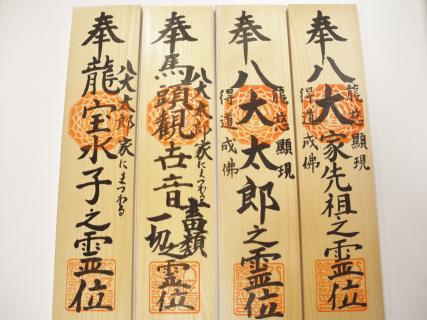 奉八大家先祖之霊位
龍苑顯現
得道成佛
奉八大太郎之霊位
龍苑顯現
得道成佛
奉馬頭観世音畜類一切之霊位
八大太郎家にまつわる
奉龍宝水子之霊位
八大太郎家にまつわる